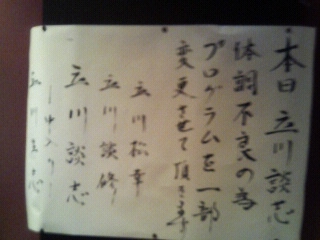 本日 立川談志
体調不良の為
プログラムを一部
変更させて頂きます
立川松幸
立川談修
立川談志
―中入り―
立川談志